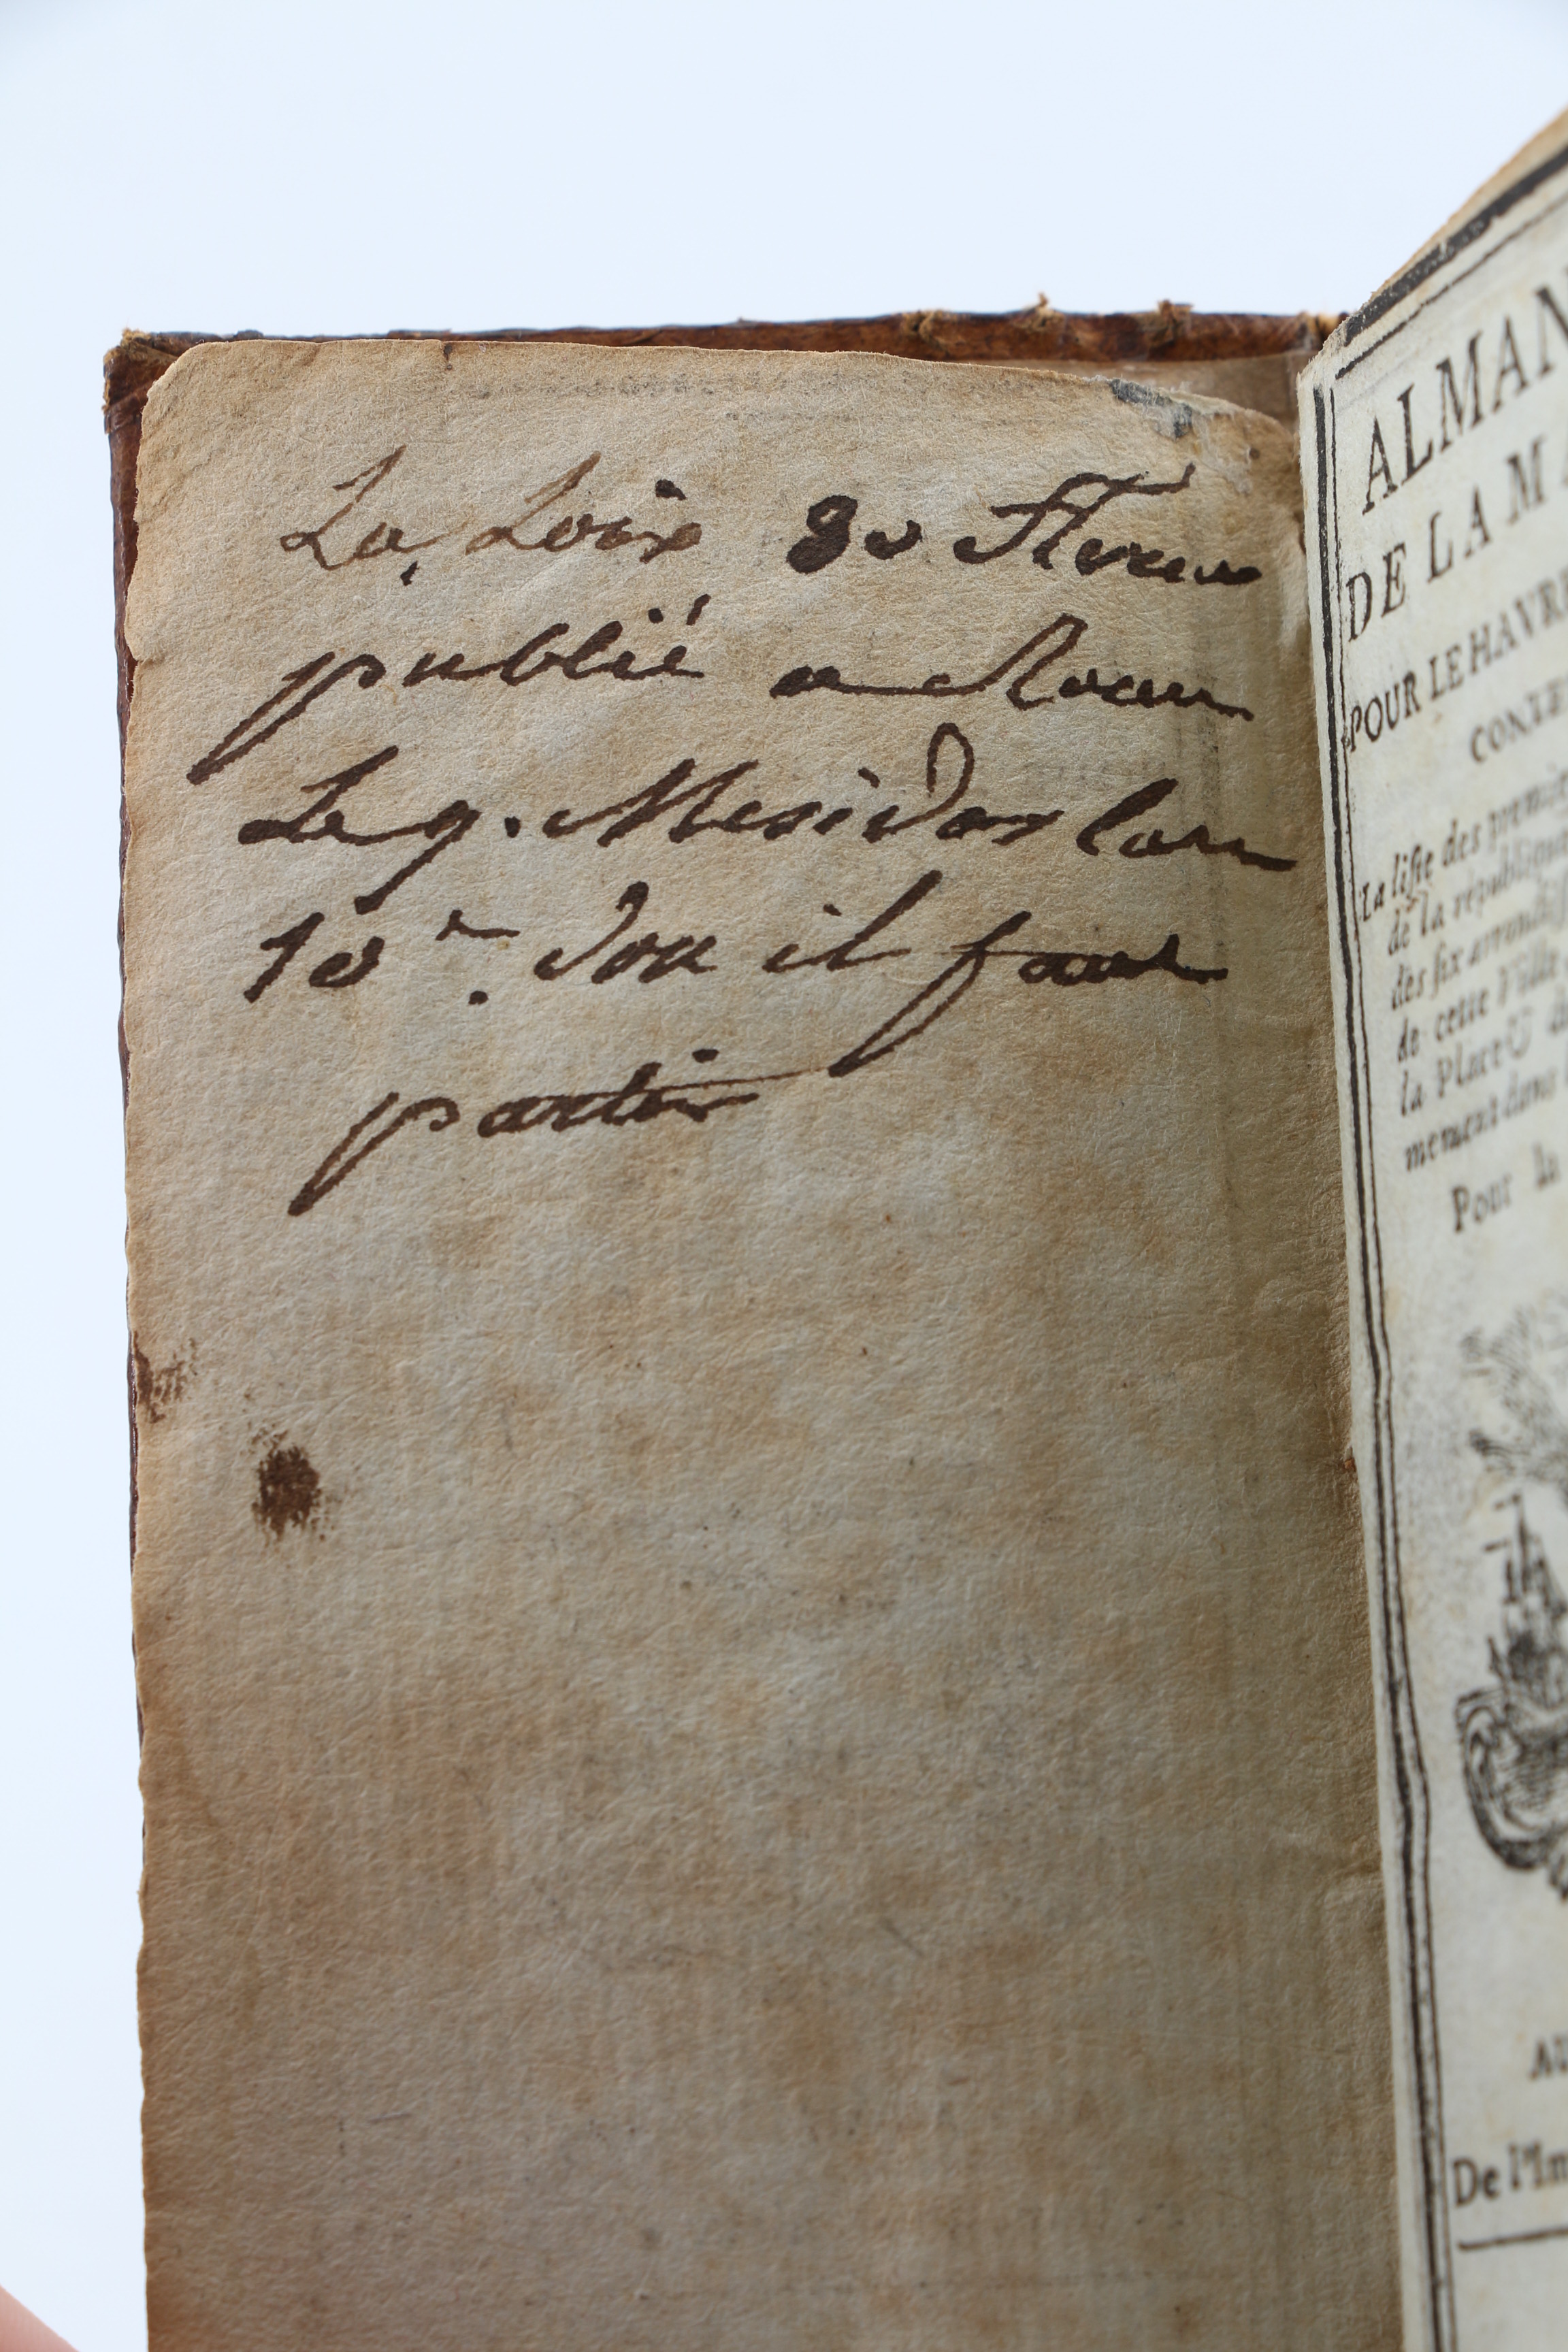 La Loix 30 Floreal
publié a Rouen
Le 9. Mesidor l'an
10 m. dou il faut
partir
ALMAN
DE LA MA
POUR LE HAVRE
CONTE
La liste des premi
de la république
des six arrondi
de cette Ville
la Place & d
mement dans
Pour la
AU
De l'Im